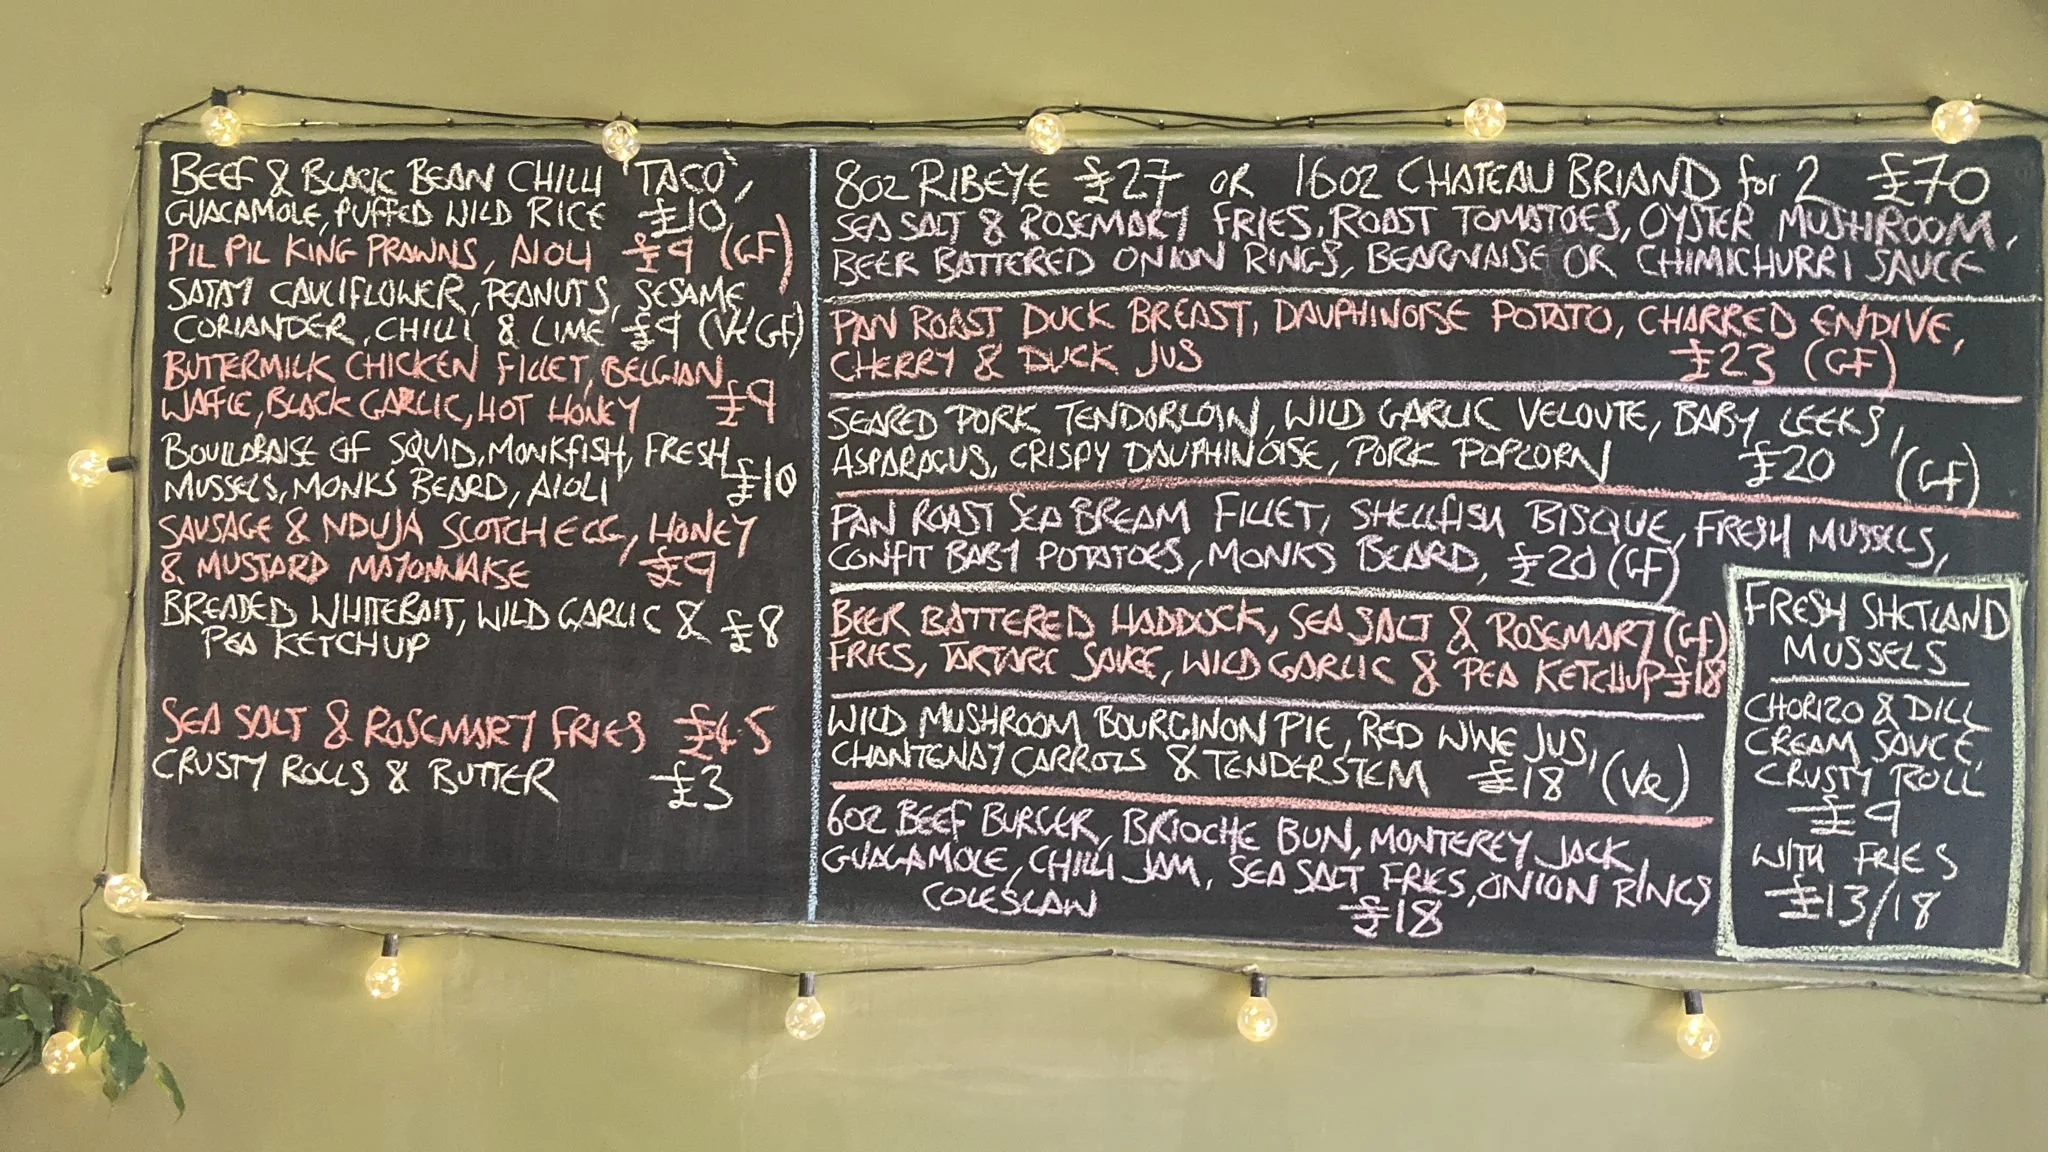 BEEF & BLACK BEAN CHILLI "TACO",
GUACAMOLE, PUFFED WILD RICE £10
PIL PIL KING PRAWNS, AIOLI £9 (GF)
SATAY CAULIFLOWER, PEANUTS, SESAME
CORIANDER, CHILLI & LIME £9 (Ve/GF)
BUTTERMILK CHICKEN FILLET, BELGIAN
WAFFLE, BLACK GARLIC, HOT HONEY £9
BOUILABAISE OF SQUID, MONKFISH, FRESH
MUSSELS, MONKS BEARD, AIOLI £10
SAUSAGE & NDUJA SCOTCH EGG, HONEY
& MUSTARD MAYONNAISE £9
BREADED WHITEBAIT, WILD GARLIC & £8
PEA KETCHUP
SEA SALT & ROSEMARY FRIES £4.5
CRUSTY ROLLS & BUTTER £3
8OZ RIBEYE £27 OR 16OZ CHATEAU BRIAND for 2 £70
SEA SALT & ROSEMARY FRIES, ROAST TOMATOES, OYSTER MUSHROOM,
BEER BATTERED ONION RINGS, BEARNAISE OR CHIMICHURRI SAUCE
PAN ROAST DUCK BREAST, DAUPHINOISE POTATO, CHARRED ENDIVE,
CHERRY & DUCK JUS £23 (GF)
SEARED PORK TENDORLOIN, WILD GARLIC VELOUTE, BABY LEEKS,
ASPARAGUS, CRISPY DAUPHINOISE, PORK POPCORN £20 (GF)
PAN ROAST SEA BREAM FILLET, SHELLFISH BISQUE, FRESH MUSSELS,
CONFIT BABY POTATOES, MONKS BEARD, £20 (GF)
BEER BATTERED HADDOCK, SEA SALT & ROSEMARY (GF)
FRIES, TARTARE SAUCE, WILD GARLIC & PEA KETCHUP £18
WILD MUSHROOM BOURGINON PIE, RED WINE JUS,
CHANTENAY CARROTS & TENDERSTEM £18 (Ve)
6OZ BEEF BURGER, BRIOCHE BUN, MONTEREY JACK,
GUACAMOLE, CHILLI JAM, SEA SALT FRIES, ONION RINGS
COLESLAW £18
FRESH SHETLAND
MUSSELS
CHORIZO & DILL
CREAM SAUCE,
CRUSTY ROLL
£9
WITH FRIES
£13/18